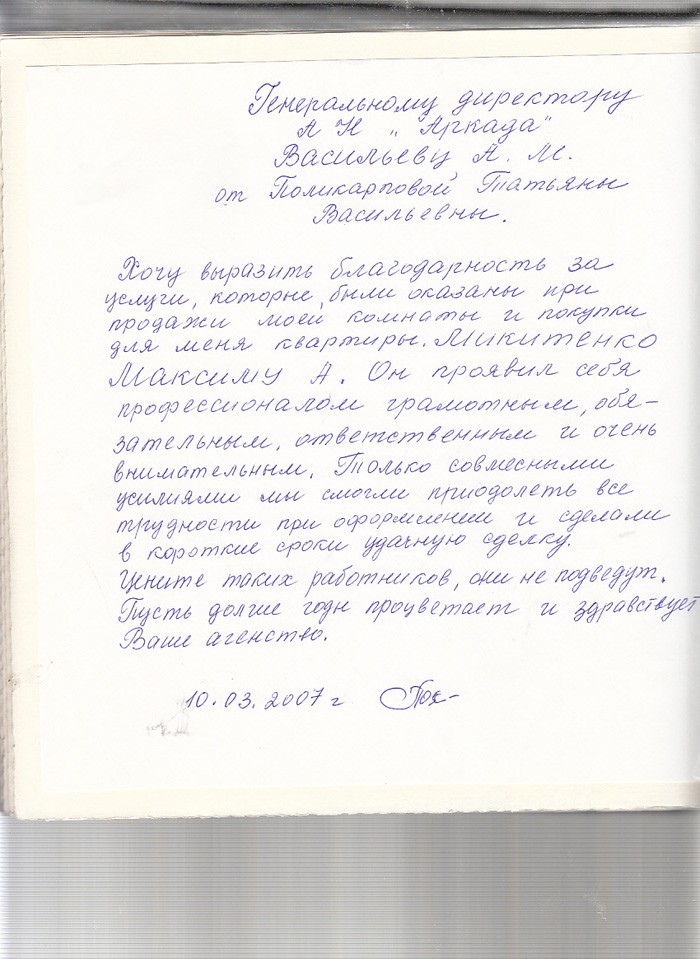 Генеральному директору
АН „Аркада"
Васильеву А. М.
от Поликарповой Татьяны
Васильевны.
Хочу выразить благодарность за
услуги, которые были оказаны при
продажи моей комнаты и покупки
для меня квартиры. Микитенко
Максиму А. Он проявил себя
профессионалом грамотным, обя-
зательным, ответственным и очень
внимательным. Только совмесными
усилиями мы смогли приодолеть все
трудности при оформлении и сделали
в короткие сроки удачную сделку.
Цените таких работников, они не подведут.
Пусть долгие годы процветает и здравствует
Ваше агенство.
10.03.2007 г